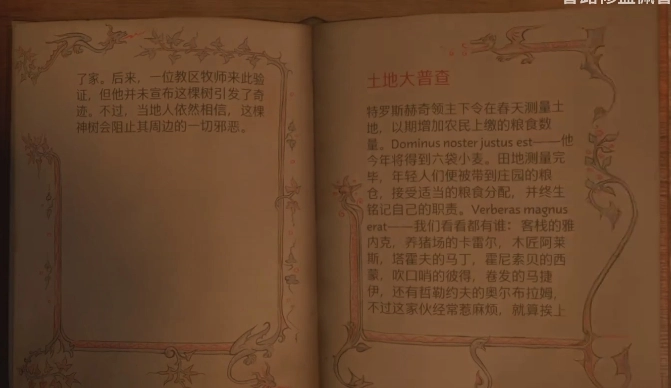 了家。后来，一位教区牧师来此验
证，但他并未宣布这棵树引发了奇
迹。不过，当地人依然相信，这棵
神树会阻止其周边的一切邪恶。
土地大普查
特罗斯赫奇领主下令在春天测量土
地，以期增加农民上缴的粮食数
量。Dominus noster justus est——他
今年将得到六袋小麦。田地测量完
毕，年轻人们便被带到庄园的粮
仓，接受适当的粮食分配，并终生
铭记自己的职责。Verberas magnus
erat——我们看看都有谁：客栈的雅
内克，养猪场的卡雷尔，木匠阿莱
斯，塔霍夫的马丁，霍尼素贝的西
蒙，吹口哨的彼得，卷发的马捷
伊，还有哲勒约夫的奥尔布拉姆，
不过这家伙经常惹麻烦，就算挨上